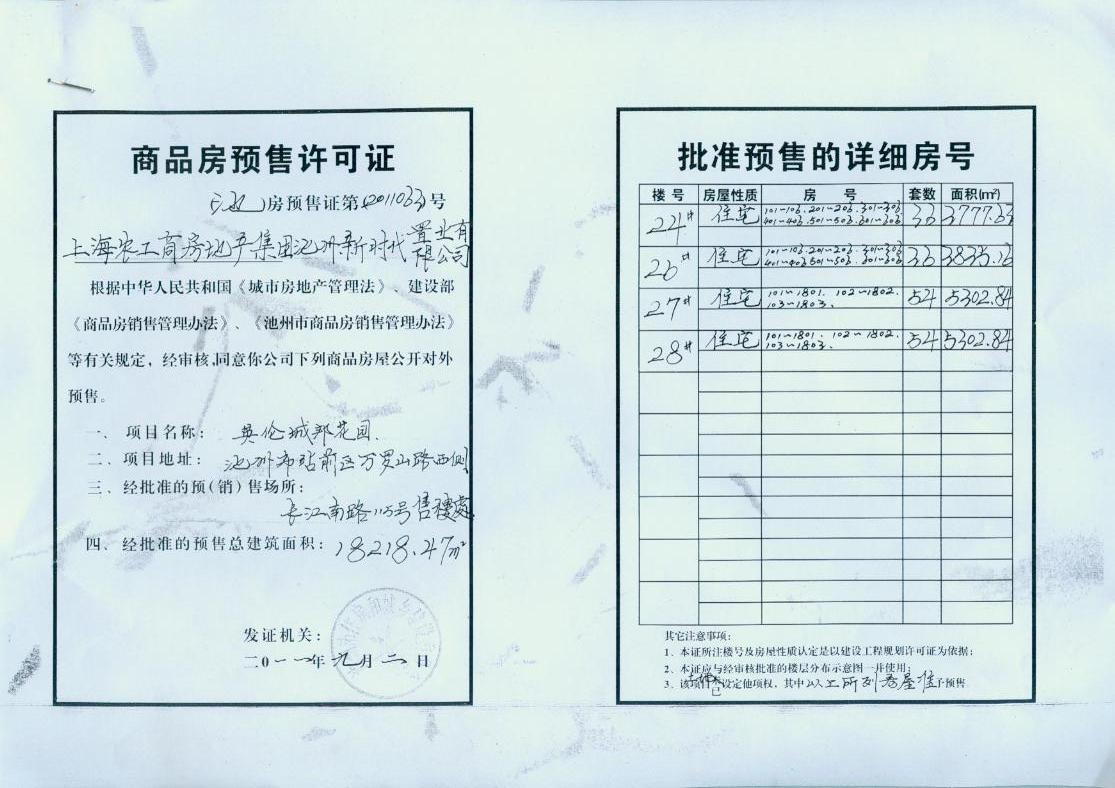 商品房预售许可证
(池)房预售证第(2011033)号
上海农工商房地产集团池州新时代置业有限公司
根据中华人民共和国《城市房地产管理法》、建设部
《商品房销售管理办法》、《池州市商品房销售管理办法》
等有关规定，经审核，同意你公司下列商品房屋公开对外
预售。
一、项目名称：英伦城邦花园.
二、项目地址：池州市站前区万罗山路西侧
三、经批准的预(销)售场所：
长江南路115号售楼處
四、经批准的预售总建筑面积：18218.47m²
发证机关：
二0一一年九月二日
批准预售的详细房号
楼号 房屋性质 房号 套数 面积(m²)
24# 住宅 101~103.201~203.301~303 33 3777.63
401~403.501~503.601~603
26# 住宅 101~103.201~203.301~303 33 3835.16
401~403.501~503.601~603
27# 住宅 101~1801. 102~1802. 54 5302.84
103~1803.
28# 住宅 101~1801. 102~1802. 54 5302.84
103~1803.
其它注意事项：
1、本证所注楼号及房屋性质认定是以建设工程规划许可证为依据；
2、本证应与经审核批准的楼层分布示意图一并使用；
3、该项目已设定他项权，其中以上所列房屋准予预售